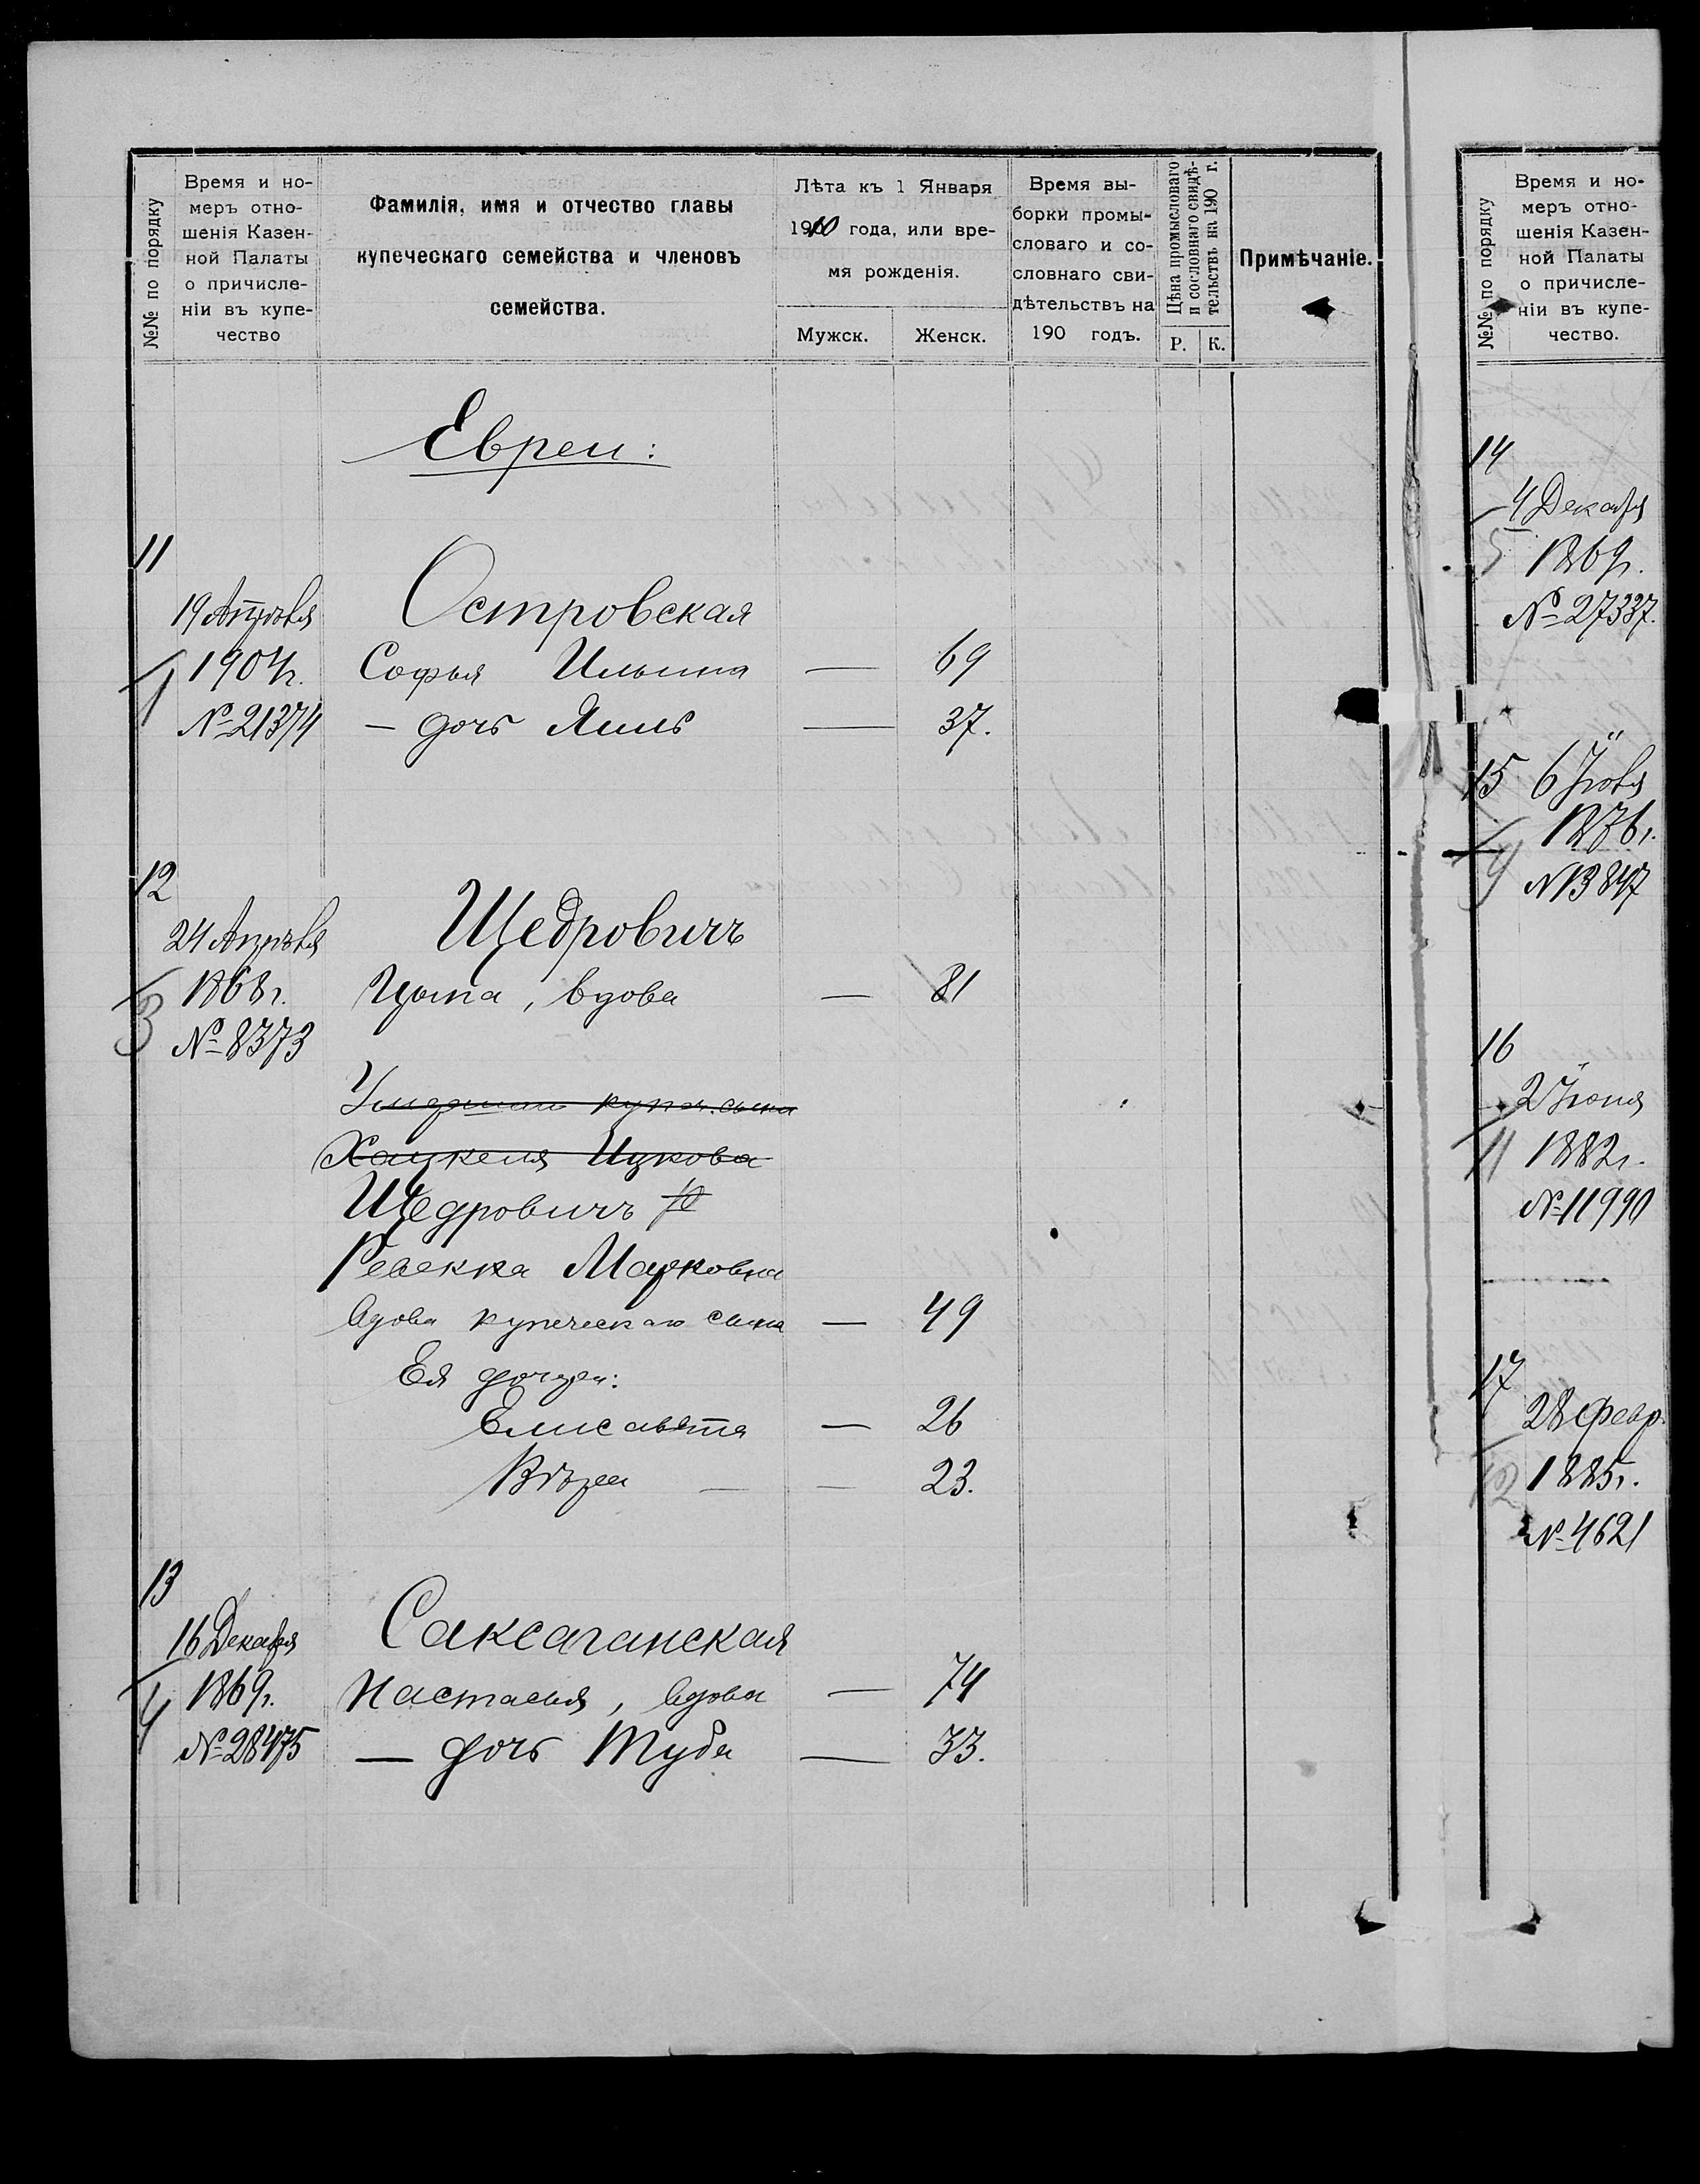 №№ по порядку
Время и но-
меръ отно-
шенія Казен-
ной Палаты
о причисле-
ніи въ купе-
чество
Фамилія, имя и отчество главы
купеческаго семейства и членовъ
семейства.
Лѣта къ 1 Января
1910 года, или вре-
мя рожденія.
Мужск.
Женск.
Время вы-
борки промы-
словаго и со-
словнаго сви-
дѣтельствъ на
190 годъ.
Цѣна промысловаго
и сословнаго свидѣ-
тельствъ на 190 г.
Р.
К.
Примѣчаніе.
Евреи:
11
19 Апрѣля
1904г.
№ 21374
1
Островская
Софья Ильина — 69
— дочь — 37.
12
24 Апрѣля
1868г.
№ 8373
3
Щедровичъ
вдова — 81
купеч. сына
Хацкеля Ицкова
Щедровичъ
Ревекка Марковна
вдова купеческаго сына — 49
Ея дочери:
Елисавета — 26
Вѣра — — 23.
13
16 Декабря
1869г.
№ 28475
4
Саксаганская
Настасья, вдова — 74
— дочь Туба — 33.
№№ по порядку
Время и но-
меръ отно-
шенія Казен-
ной Палаты
о причисле-
ніи въ купе-
чество.
14
4 Декабря
1869г.
№ 27337.
5
15
1876г.
№ 13847
9
16
2 Іюня
1882г.
№ 11990
11
17
28 Февр.
1885г.
№ 4621
12